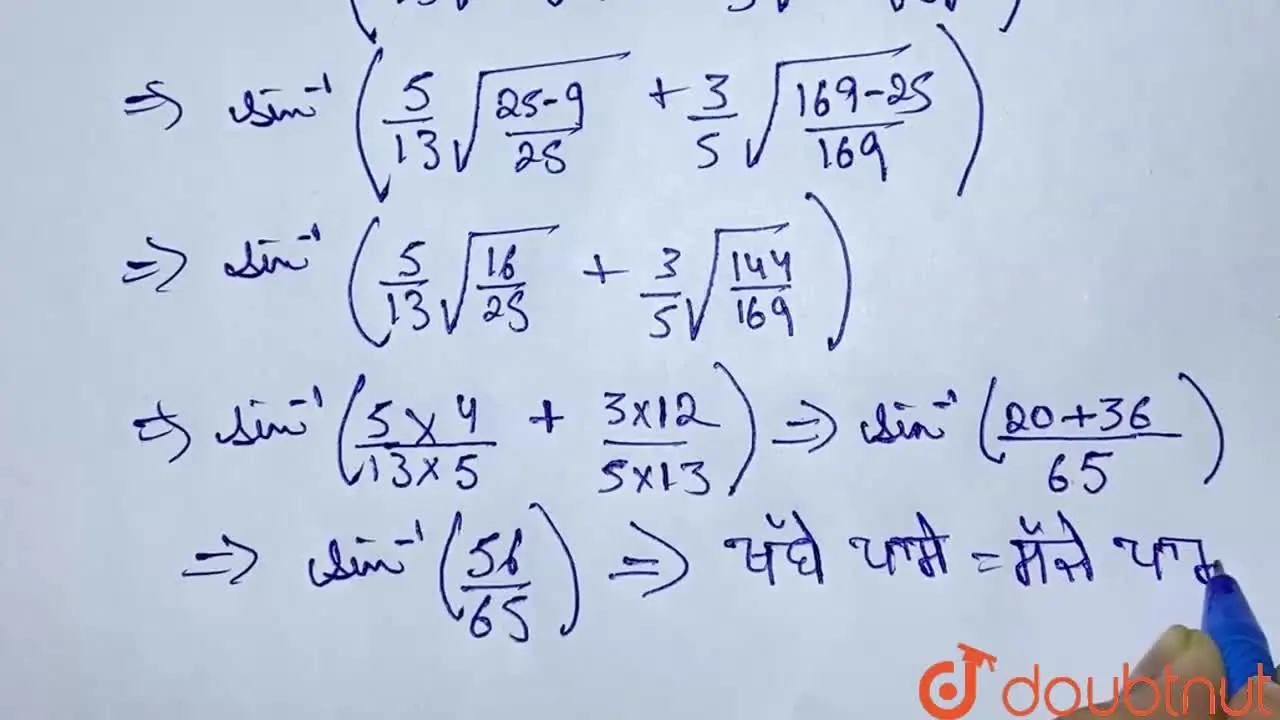 ⇒ sin⁻¹ (5/13 √(25-9/25) + 3/5 √(169-25/169))
⇒ sin⁻¹ (5/13 √(16/25) + 3/5 √(144/169))
⇒ sin⁻¹ (5×4/13×5 + 3×12/5×13) ⇒ sin⁻¹ (20+36/65)
⇒ sin⁻¹ (56/65) ⇒ ਖੱਬੇ ਪਾਸੇ = ਸੱਜੇ
doubtnut